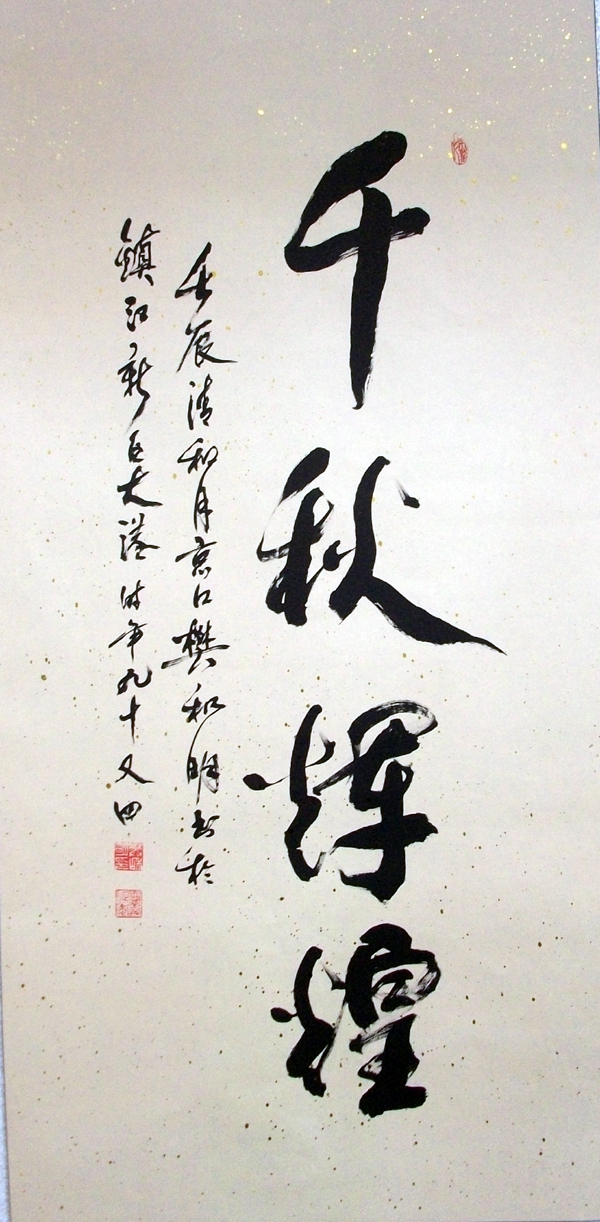 千秋輝煌
壬辰清和月京口樊和明书於
鎮江新区大港时年九十又四